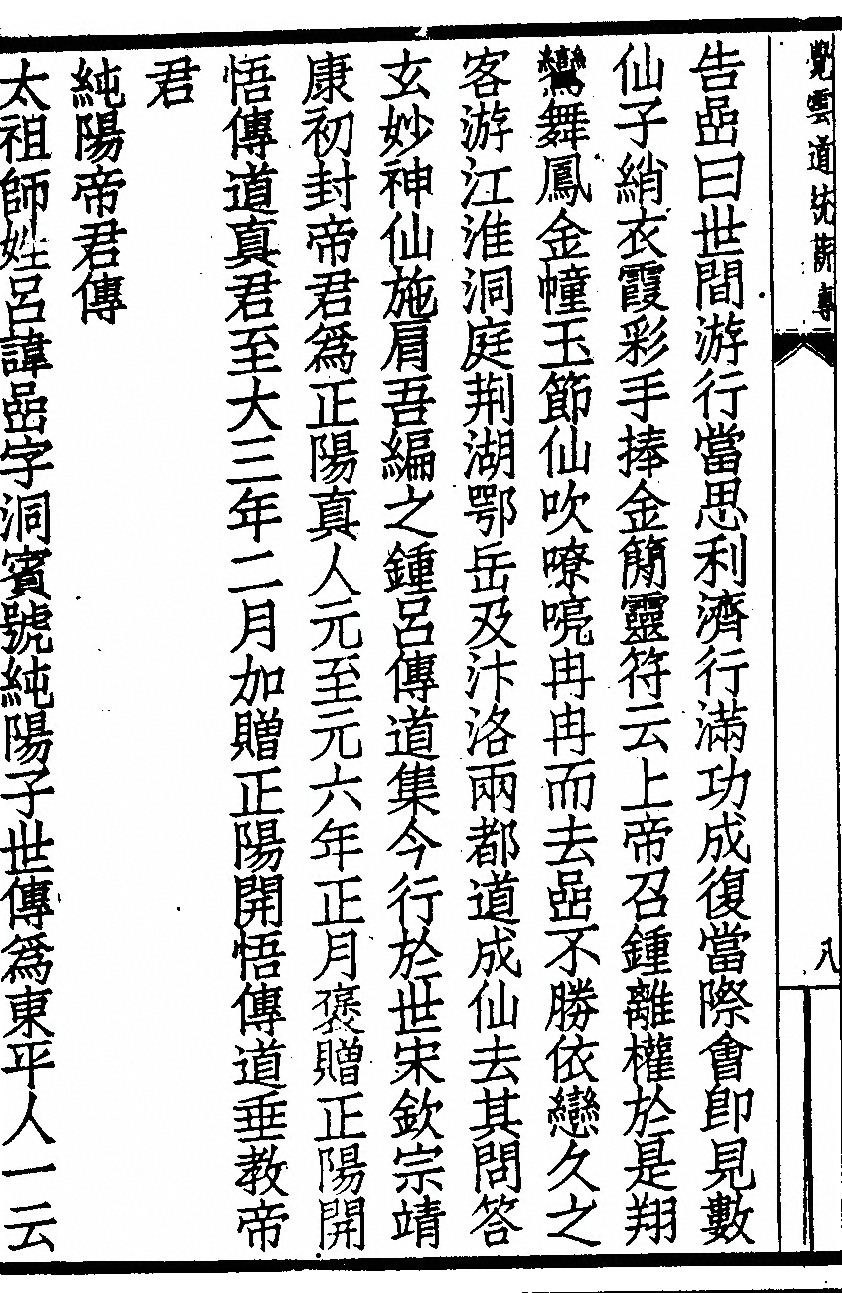 覺雲道統薪傳
八
告嵒曰世間游行當思利濟行滿功成復當際會卽見數
仙子綃衣霞彩手捧金簡靈符云上帝召鍾離權於是翔
鸞舞鳳金幢玉節仙吹嘹喨冉冉而去嵒不勝依戀久之
客游江淮洞庭荆湖鄂岳及汴洛兩都道成仙去其問答
玄妙神仙施肩吾編之鍾呂傳道集今行於世宋欽宗靖
康初封帝君爲正陽真人元至元六年正月褒贈正陽開
悟傳道真君至大三年二月加贈正陽開悟傳道垂教帝
君
純陽帝君傳
太祖師姓呂諱嵒字洞賓號純陽子世傳爲東平人一云